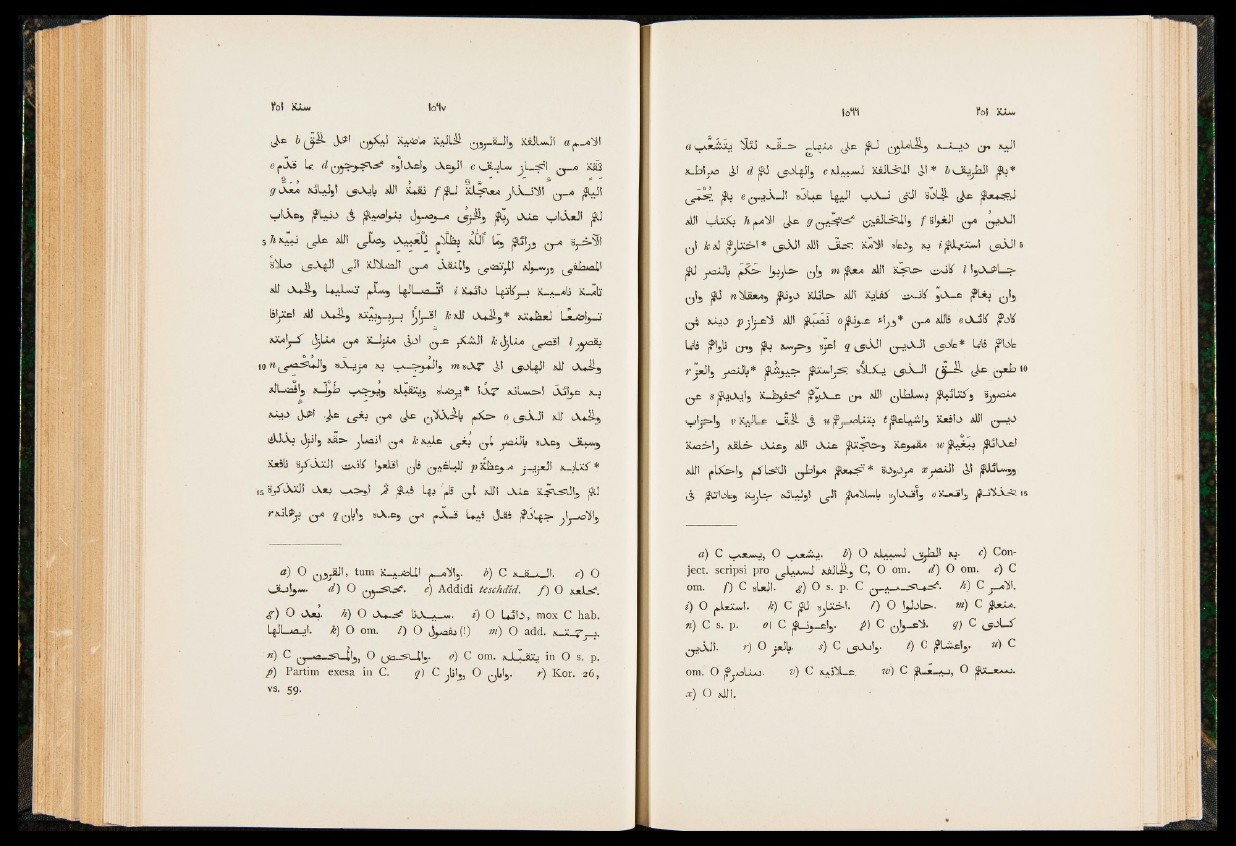 سنة ٢٥١ ١٥٦٦
اليه من دينه والحاملون لهم على منهاج حقّه لئلّا يتشعّب a
*بهم الطريق b *الى المخالفة لسبيله c والهادى لهم d الى صراطه
ليجمعهم على الجادّة التى ندب اليها عباده الذين e بهم يُحْمَى
الدين من الغواة f والمخالفين محتجّين g على الامم h بكتاب الله
5 الذى استعملهم i به ودعاة الامّة بحق الله الذى *اختارهم له k ان
جاهدوا l كانت حجّة الله معهم m وان حاربوا حكم بالنصر لهم
وان بغاهم عدوّ كانت كفاية الله حائلة دونهم ومعقلا n لهم وان
كادهم كائد e فالله من *وراء عونهم o نصبهم الله لاعزاز p دينه فمن
عاداهم فانما *عادى الدين الذى q اعزّه وحرسه بهم ومن ناواهم فانما
10 طعن على الحقّ الذى يكلؤه بحراستهم جيوشهم *بالنصر والعزّ r
منصورة وكتائبهم بسلطان الله من عدوّهم محفوظة وايديهم s عن
دين الله دافعة واشياعهم t بتناصرهم u فى الحقّ عالية v واحزاب
اعدائهم ببغيهم w مقموعة وحجّتهم عند الله وعند خلقه داحضة
ووسائلهم الى النصر x مردودة *تجمعهم مواطن التحاكم واحكام الله
15 بخذلانهم واقعة o واقداره باسلامهم الى اوليائه جارية وعادتهم فى
a) C يسعب, O يشعب. b) O به الطريق لسبيله. c) Con-
ject. scripsi pro والخالفة لسبيلى C, O om. d) O om. e) C
om. f) C العاه. g) O s. p. C محمسسين. h) C الامر.
i) O استعلم. k) C اختاره لهم. l) O حادلوا. m) C منعهم.
n) C s. p. o) C واعوانهم. p) C لاعوان. q) C كادى
الذين. r) O بالعز. s) C واندى. t) C واعشاهم. u) C
om. O سناصرهم. v) C علانيه. w) C بسعيهم, O سعتهم.
x) O الله.
١٥٦٧ سنة ٢٥١
الامم a السالفة والقرون الخالية ماضية ليكون اهل الحقّ b على
ثقة من انجاز سابق c الوعد واعداؤه محجوجين d بما قدّم e
اليهم من الانذار معجّلة لهم f نقمة الله بايدى اوليائه مُعَدّا g
لهم العذاب عند ربّهم والخزى موصول بنواصيهم فى دنياهم وعذاب
5 الآخرة من ورائهم وما اللّه بظلّام للعبيد وصلى الله على نبيّه h
المصطفى ورسوله المرتضى والمنقذ من الضلالة الى الهدى صلاة
تامّة نامية بركاتها دائمة i اتّصالها وسلم تسليما والحمد لله
تواضعًا لعظمته *والحمد لله k اقرارًا بربوبيّته والحمد لله اعترافا
بقصور l اقصى منازل k الشكر عن ادنى منزلة من منازل كرامته
10 والحمد لله الهادى الى حمده m والموجب به مزيده والمُحصى n
به عوائد احسانه حمدًا *يرضاه ويتقبّله ويوجب طَوْله وافضاله
والحمد لله الذى o حكم بالخذلان على من بغى على اهل دينه
وسبق وعده بالنصر لمن بغى عليه k من انصار حقّه وانزل بذلك
*كتابه العزيز موعظة p للباغين فان اقلعوا كانت التذكرة نافعة
15 لهم والحجّة عند الله لمن قام بها فيهم ثم اوجب بعد التذكرة
والاصرار جهادهم فقال فيما قدّم من وعده وابان q من برهانه r
a) O القرون, tum والامم الماضية. b) C السقه. c) O
سوابق. d) O محجون. e) Addidi teschdid. f) O محله.
g) O بُعد. h) O سيدنا محمد. i) O دائما, mox C hab.
ايصالها. k) O om. l) O بفصول (!) m) O add. برحمته.
n) C والمحصن, O والمخلص. o) C om. يتقبله in O s. p.
p) Partim exesa in C. q) C وانار, O وابان. r) Kor. 26,
vs. 59.